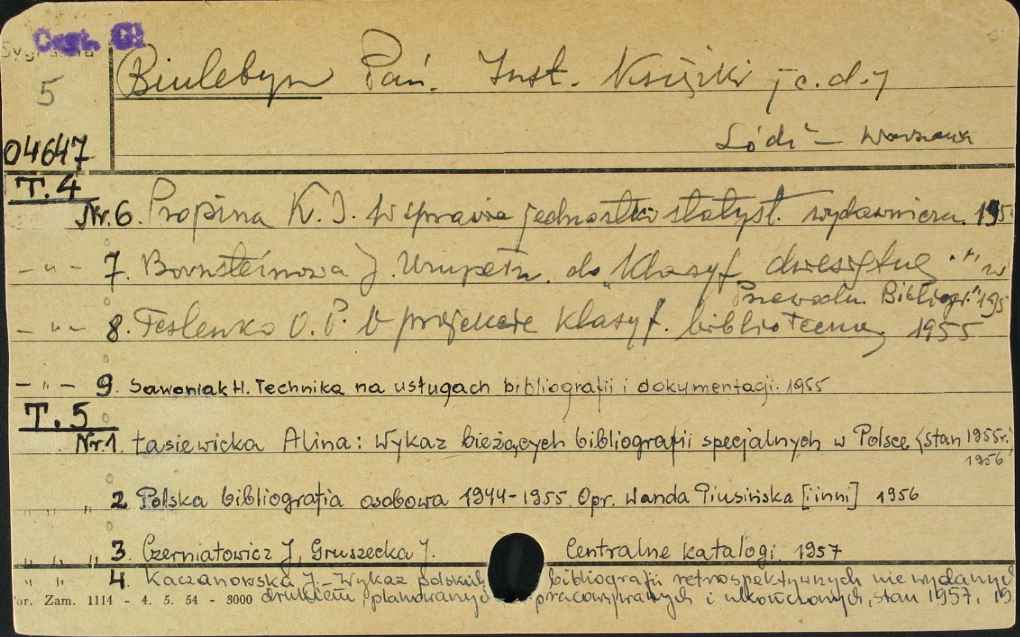 Czyt. Gł.
Sygnatura
5
Biuletyn Pań. Inst. Książki /c.d./
04647
Łódź – Warszawa
T. 4
Nr. 6. Propina K. I. W sprawie jednostki statyst. wydawnicza. 195
– " – 7. Bornsteinowa J. Uzupełn. do "Klasyf. dziesiętnej" w
Przewodn. Bibliogr." 195
– " – 8. Teslenko O. P. O projekcie klasyf. bibliotecznej 1955
– " – 9. Sawoniak H. Technika na usługach bibliografii i dokumentacji. 1955
T. 5
Nr. 1 Łasiewicka Alina: Wykaz bieżących bibliografii specjalnych w Polsce (stan 1955r.)
1956
" " 2 Polska bibliografia osobowa 1944-1955. Opr. Wanda Piusińska [i inni] 1956
" " " 3. Czerniatowicz J, Gruszecka J. Centralne katalogi. 1957
" " 4. Kaczanowska J. – Wykaz polskich bibliografii retrospektywnych nie wydanych
drukiem, planowanych opracowywanych i ukończonych, stan 1957, 19
or. Zam. 1114 - 4. 5. 54 - 3000